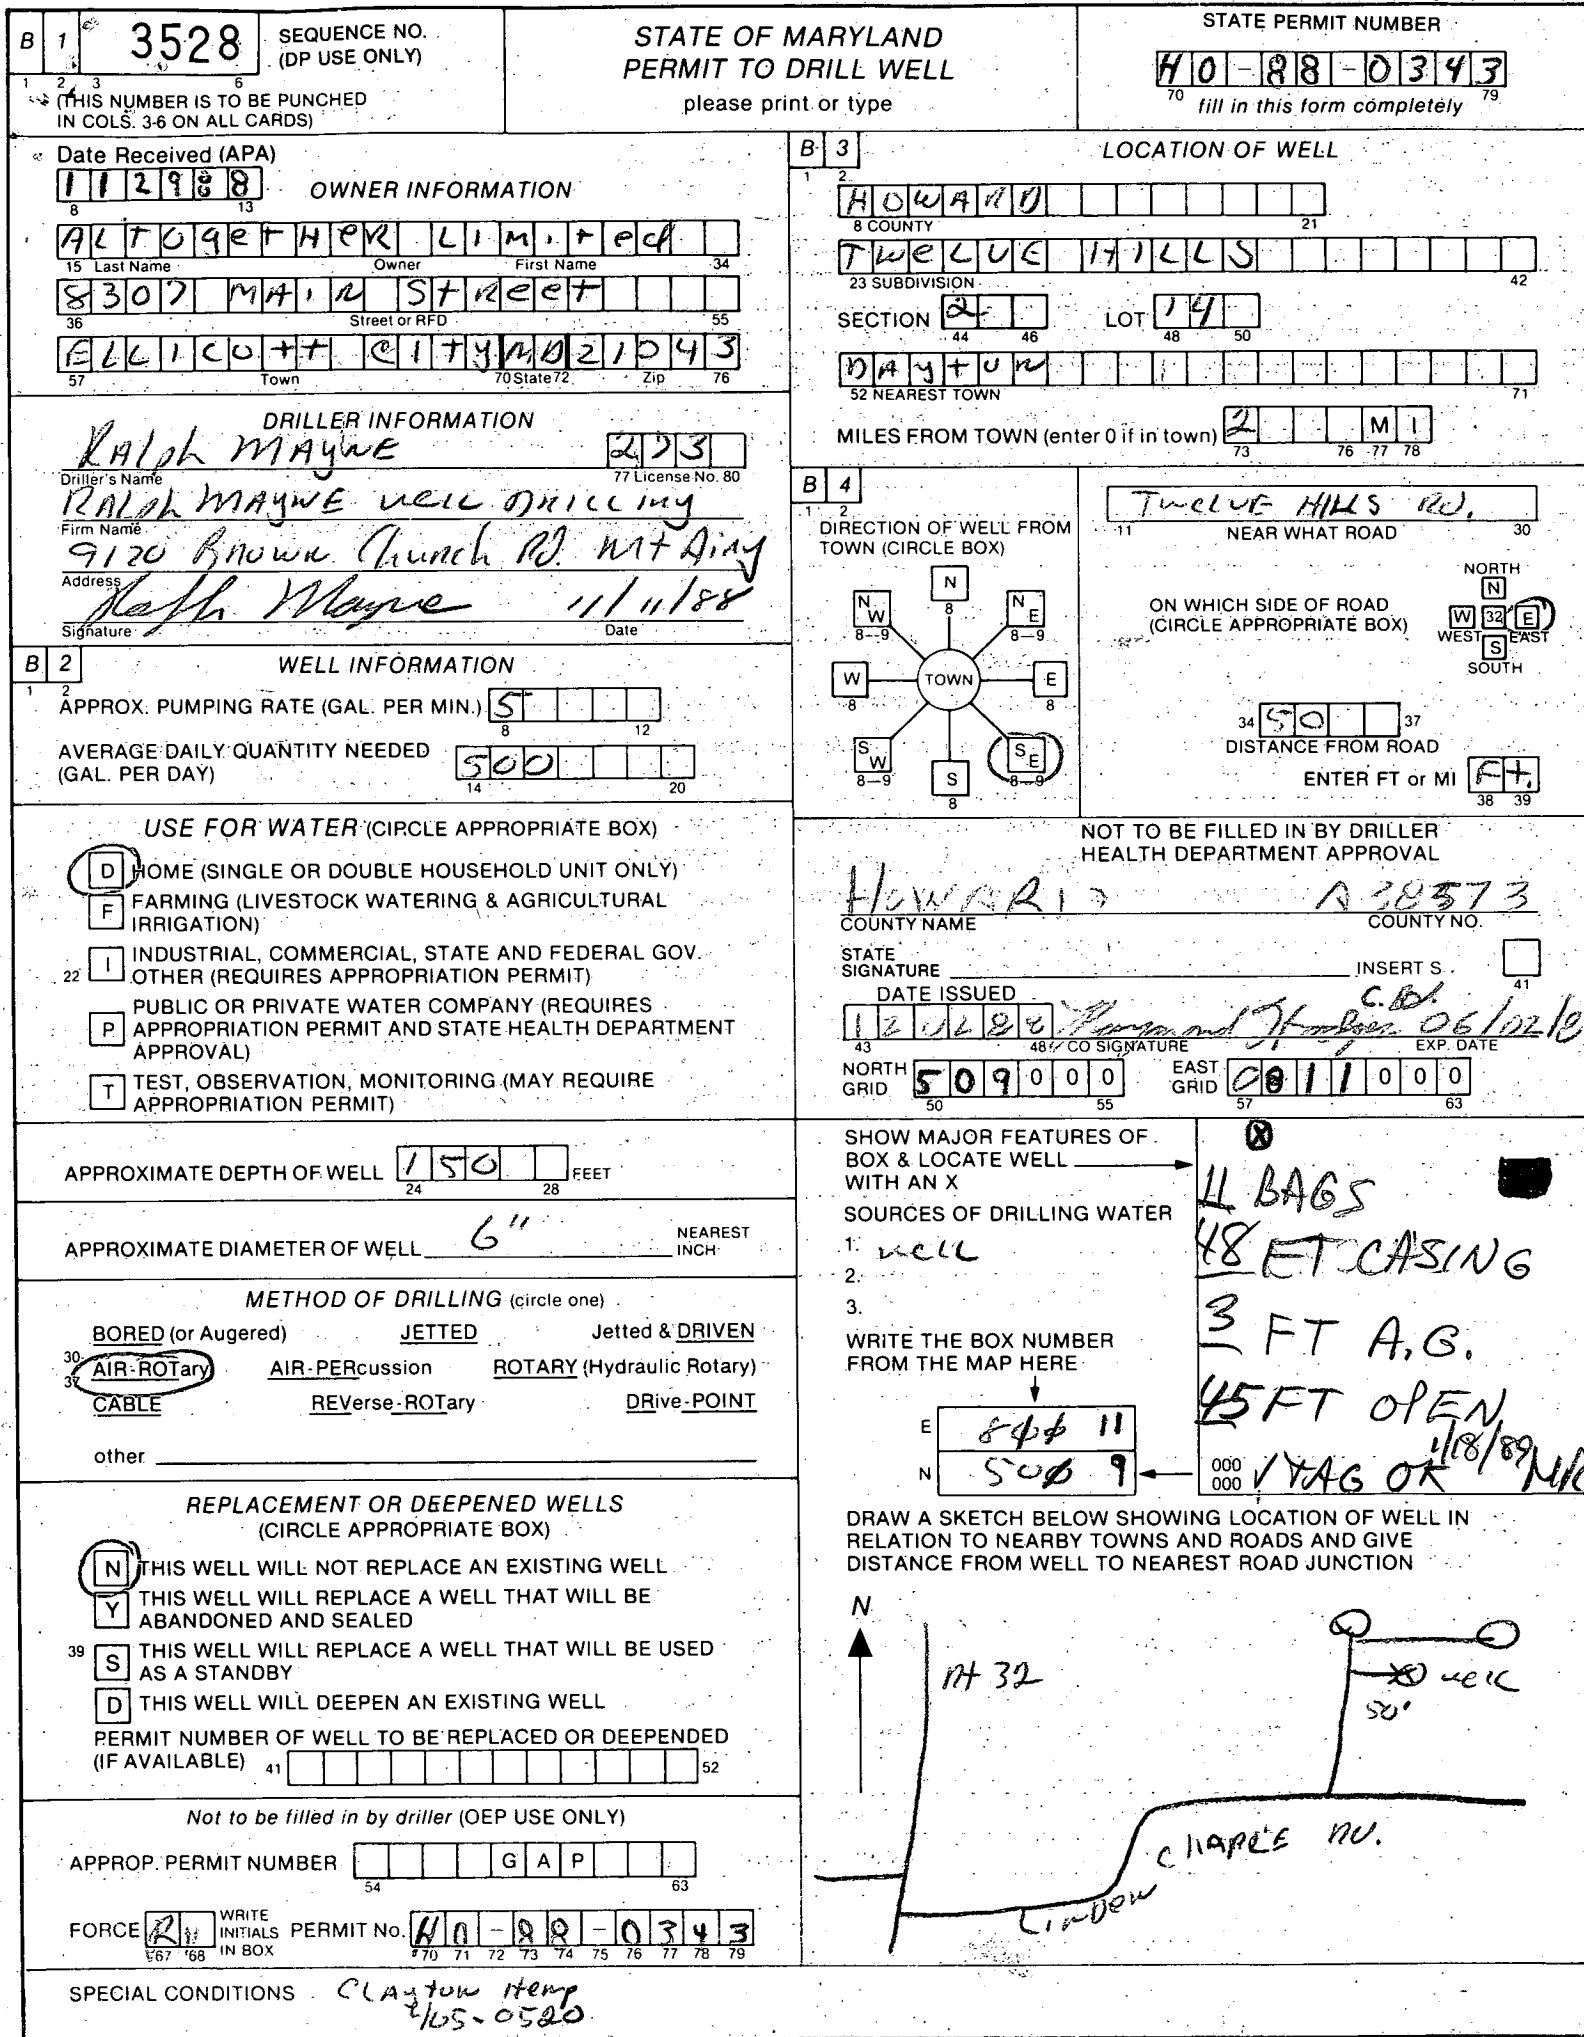 B 1 3528 SEQUENCE NO. (DP USE ONLY)
1 2 3 6
(THIS NUMBER IS TO BE PUNCHED
IN COLS. 3-6 ON ALL CARDS)
STATE OF MARYLAND
PERMIT TO DRILL WELL
please print or type
STATE PERMIT NUMBER
HO-88-0343
70 79
fill in this form completely
Date Received (APA)
112988
8 13
OWNER INFORMATION
ALTOgetHeR LIMited
15 Last Name Owner First Name 34
8307 MAIN StReet
36 Street or RFD 55
ELLICOtt CITY MD 21043
57 Town 70 State 72 Zip 76
DRILLER INFORMATION
RAlph MAYNE 273
Driller's Name 77 License No. 80
RALph MAYNE well DRILLING
Firm Name
9120 Brown Church Rd. Mt Airy
Address
Ralph Mayne 11/11/88
Signature Date
B 2 WELL INFORMATION
1 2
APPROX. PUMPING RATE (GAL. PER MIN.) 5
8 12
AVERAGE DAILY QUANTITY NEEDED
(GAL. PER DAY) 500
14 20
USE FOR WATER (CIRCLE APPROPRIATE BOX)
D HOME (SINGLE OR DOUBLE HOUSEHOLD UNIT ONLY)
F FARMING (LIVESTOCK WATERING & AGRICULTURAL
IRRIGATION)
22 I INDUSTRIAL, COMMERCIAL, STATE AND FEDERAL GOV.
OTHER (REQUIRES APPROPRIATION PERMIT)
P PUBLIC OR PRIVATE WATER COMPANY (REQUIRES
APPROPRIATION PERMIT AND STATE HEALTH DEPARTMENT
APPROVAL)
T TEST, OBSERVATION, MONITORING (MAY REQUIRE
APPROPRIATION PERMIT)
APPROXIMATE DEPTH OF WELL 150 FEET
24 28
APPROXIMATE DIAMETER OF WELL 6" NEAREST INCH
METHOD OF DRILLING (circle one)
BORED (or Augered) JETTED Jetted & DRIVEN
30 AIR-ROTary AIR-PERcussion ROTARY (Hydraulic Rotary)
37 CABLE REVerse-ROTary DRive-POINT
other
REPLACEMENT OR DEEPENED WELLS
(CIRCLE APPROPRIATE BOX)
N THIS WELL WILL NOT REPLACE AN EXISTING WELL
Y THIS WELL WILL REPLACE A WELL THAT WILL BE
ABANDONED AND SEALED
39 S THIS WELL WILL REPLACE A WELL THAT WILL BE USED
AS A STANDBY
D THIS WELL WILL DEEPEN AN EXISTING WELL
PERMIT NUMBER OF WELL TO BE REPLACED OR DEEPENDED
(IF AVAILABLE) 41 52
Not to be filled in by driller (OEP USE ONLY)
APPROP. PERMIT NUMBER G A P
54 63
FORCE WRITE INITIALS IN BOX PERMIT No. HO-88-0343
67 68 70 71 72 73 74 75 76 77 78 79
SPECIAL CONDITIONS CLAyton Hemp
-0520
B 3 LOCATION OF WELL
1 2
HOWARD
8 COUNTY 21
TWeLVE HILLS
23 SUBDIVISION 42
SECTION 2 LOT 14
44 46 48 50
DAytON
52 NEAREST TOWN 71
MILES FROM TOWN (enter 0 if in town) 2 M I
73 76 77 78
B 4
1 2
DIRECTION OF WELL FROM
TOWN (CIRCLE BOX)
N
8
NW NE
8-9 8-9
W TOWN E
8 8
SW SE
8-9 8-9
S
8
TwelVE HILLS RD.
11 NEAR WHAT ROAD 30
ON WHICH SIDE OF ROAD
(CIRCLE APPROPRIATE BOX)
NORTH
N
W 32 E
WEST EAST
S
SOUTH
34 50 37
DISTANCE FROM ROAD
ENTER FT or MI Ft.
38 39
NOT TO BE FILLED IN BY DRILLER
HEALTH DEPARTMENT APPROVAL
HOWARD A38573
COUNTY NAME COUNTY NO.
STATE
SIGNATURE INSERT S
41
DATE ISSUED
120288
43 48 CO SIGNATURE EXP. DATE
NORTH GRID 509000 EAST GRID 0811000
50 55 57 63
SHOW MAJOR FEATURES OF
BOX & LOCATE WELL
WITH AN X
SOURCES OF DRILLING WATER
1. well
2.
3.
WRITE THE BOX NUMBER
FROM THE MAP HERE
E 800 11
N 500 9
X
11 BAGS
48 FT CASING
3 FT A.G.
45 FT OPEN
1/18/89
000
000 TAG OK
DRAW A SKETCH BELOW SHOWING LOCATION OF WELL IN
RELATION TO NEARBY TOWNS AND ROADS AND GIVE
DISTANCE FROM WELL TO NEAREST ROAD JUNCTION
N
Rt 32
well
50'
LINDEN CHAPLE RD.